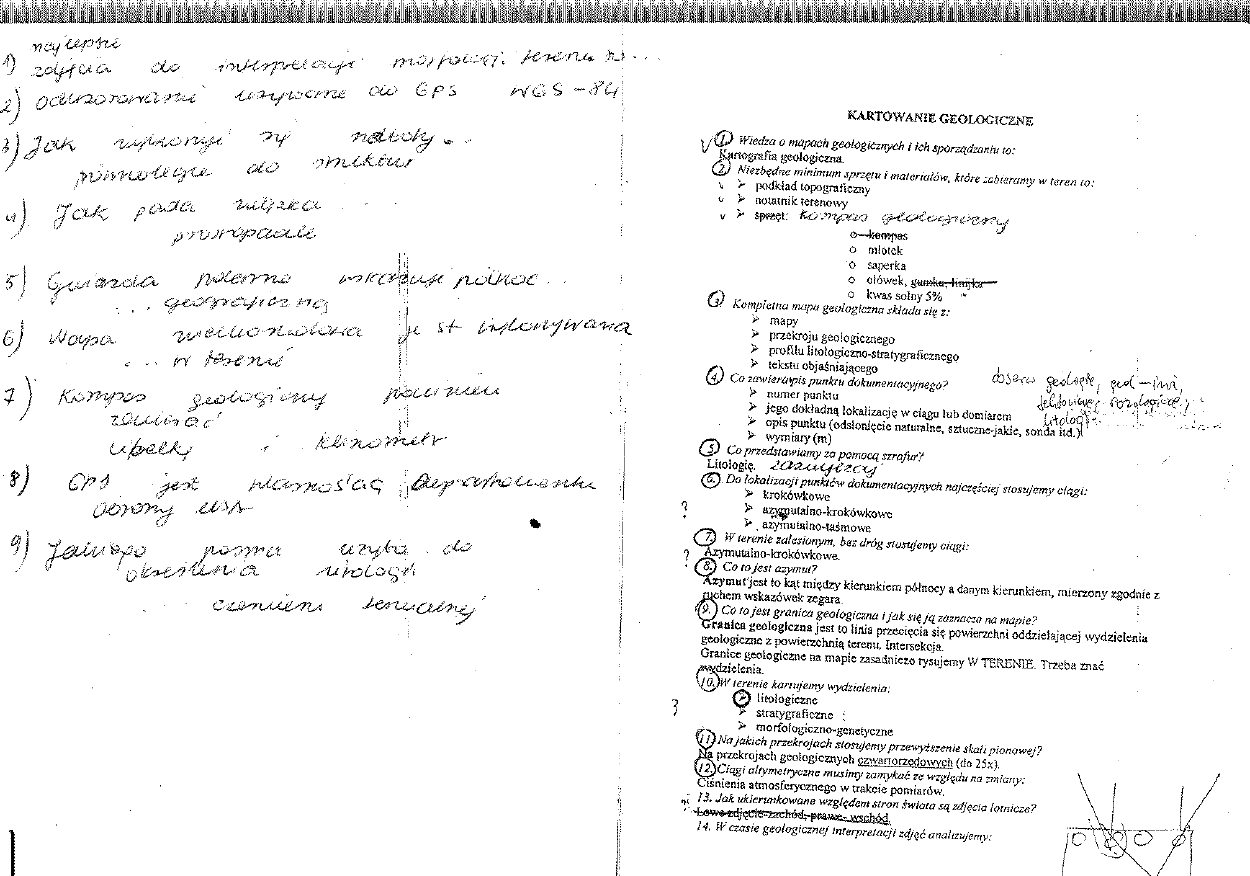 najlepsze
1) zdjęcia do interpretacji morfologi. terenu to ...
2) Odwzorowanie używane do GPS WGS-84
3) Jak wykonuje się ...
do
4) Jak pada wiązka ...
prostopadle
5) Gwiazda polarna wskazuje północ ...
... geograficzną
6) Mapa jest wykonywana
... w terenie
7) Kompas geologiczny powinien
zawierać
libelkę i klinometr
8) GPS jest własnością Departamentu
Obrony USA
9) Jakiego pasma użyba do
określenia litologii
... czerwieni
KARTOWANIE GEOLOGICZNE
1. Wiedza o mapach geologicznych i ich sporządzaniu to:
Kartografia geologiczna.
2. Niezbędne minimum sprzętu i materiałów, które zabieramy w teren to:
➢ podkład topograficzny
➢ notatnik terenowy
➢ sprzęt: kompas geologiczny
o kompas
o młotek
o saperka
o ołówek, gumka, linijka
o kwas solny 5%
3. Kompletna mapa geologiczna składa się z:
➢ mapy
➢ przekroju geologicznego
➢ profilu litologiczno-stratygraficznego
➢ tekstu objaśniającego
4. Co zawiera opis punktu dokumentacyjnego?
➢ numer punktu
➢ jego dokładną lokalizację w ciągu lub domiarem
➢ opis punktu (odsłonięcie naturalne, sztuczne-jakie, sonda itd.)
➢ wymiary (m)
5. Co przedstawiamy za pomocą szrafur?
Litologię. zazwyczaj
6. Do lokalizacji punktów dokumentacyjnych najczęściej stosujemy ciągi:
➢ krokówkowe
? ➢ azymutalno-krokówkowe
➢ azymutalno-taśmowe
7. W terenie zalesionym, bez dróg stosujemy ciągi:
? Azymutalno-krokówkowe.
8. Co to jest azymut?
Azymut jest to kąt między kierunkiem północy a danym kierunkiem, mierzony zgodnie z
ruchem wskazówek zegara.
9. Co to jest granica geologiczna i jak się ją zaznacza na mapie?
Granica geologiczna jest to linia przecięcia się powierzchni oddzielającej wydzielenia
geologiczne z powierzchnią terenu. Intersekcja.
Granice geologiczne na mapie zasadniczo rysujemy W TERENIE. Trzeba znać
wydzielenia.
10. W terenie kartujemy wydzielenia:
➢ litologiczne
? ➢ stratygraficzne
➢ morfologiczno-genetyczne
11. Na jakich przekrojach stosujemy przewyższenie skali pionowej?
Na przekrojach geologicznych czwartorzędowych (do 25x).
12. Ciągi altymetryczne musimy zamykać ze względu na zmiany:
Ciśnienia atmosferycznego w trakcie pomiarów.
13. Jak ukierunkowane względem stron świata są zdjęcia lotnicze?
Lewe zdjęcie-zachód, prawe- wschód.
14. W czasie geologicznej interpretacji zdjęć analizujemy: